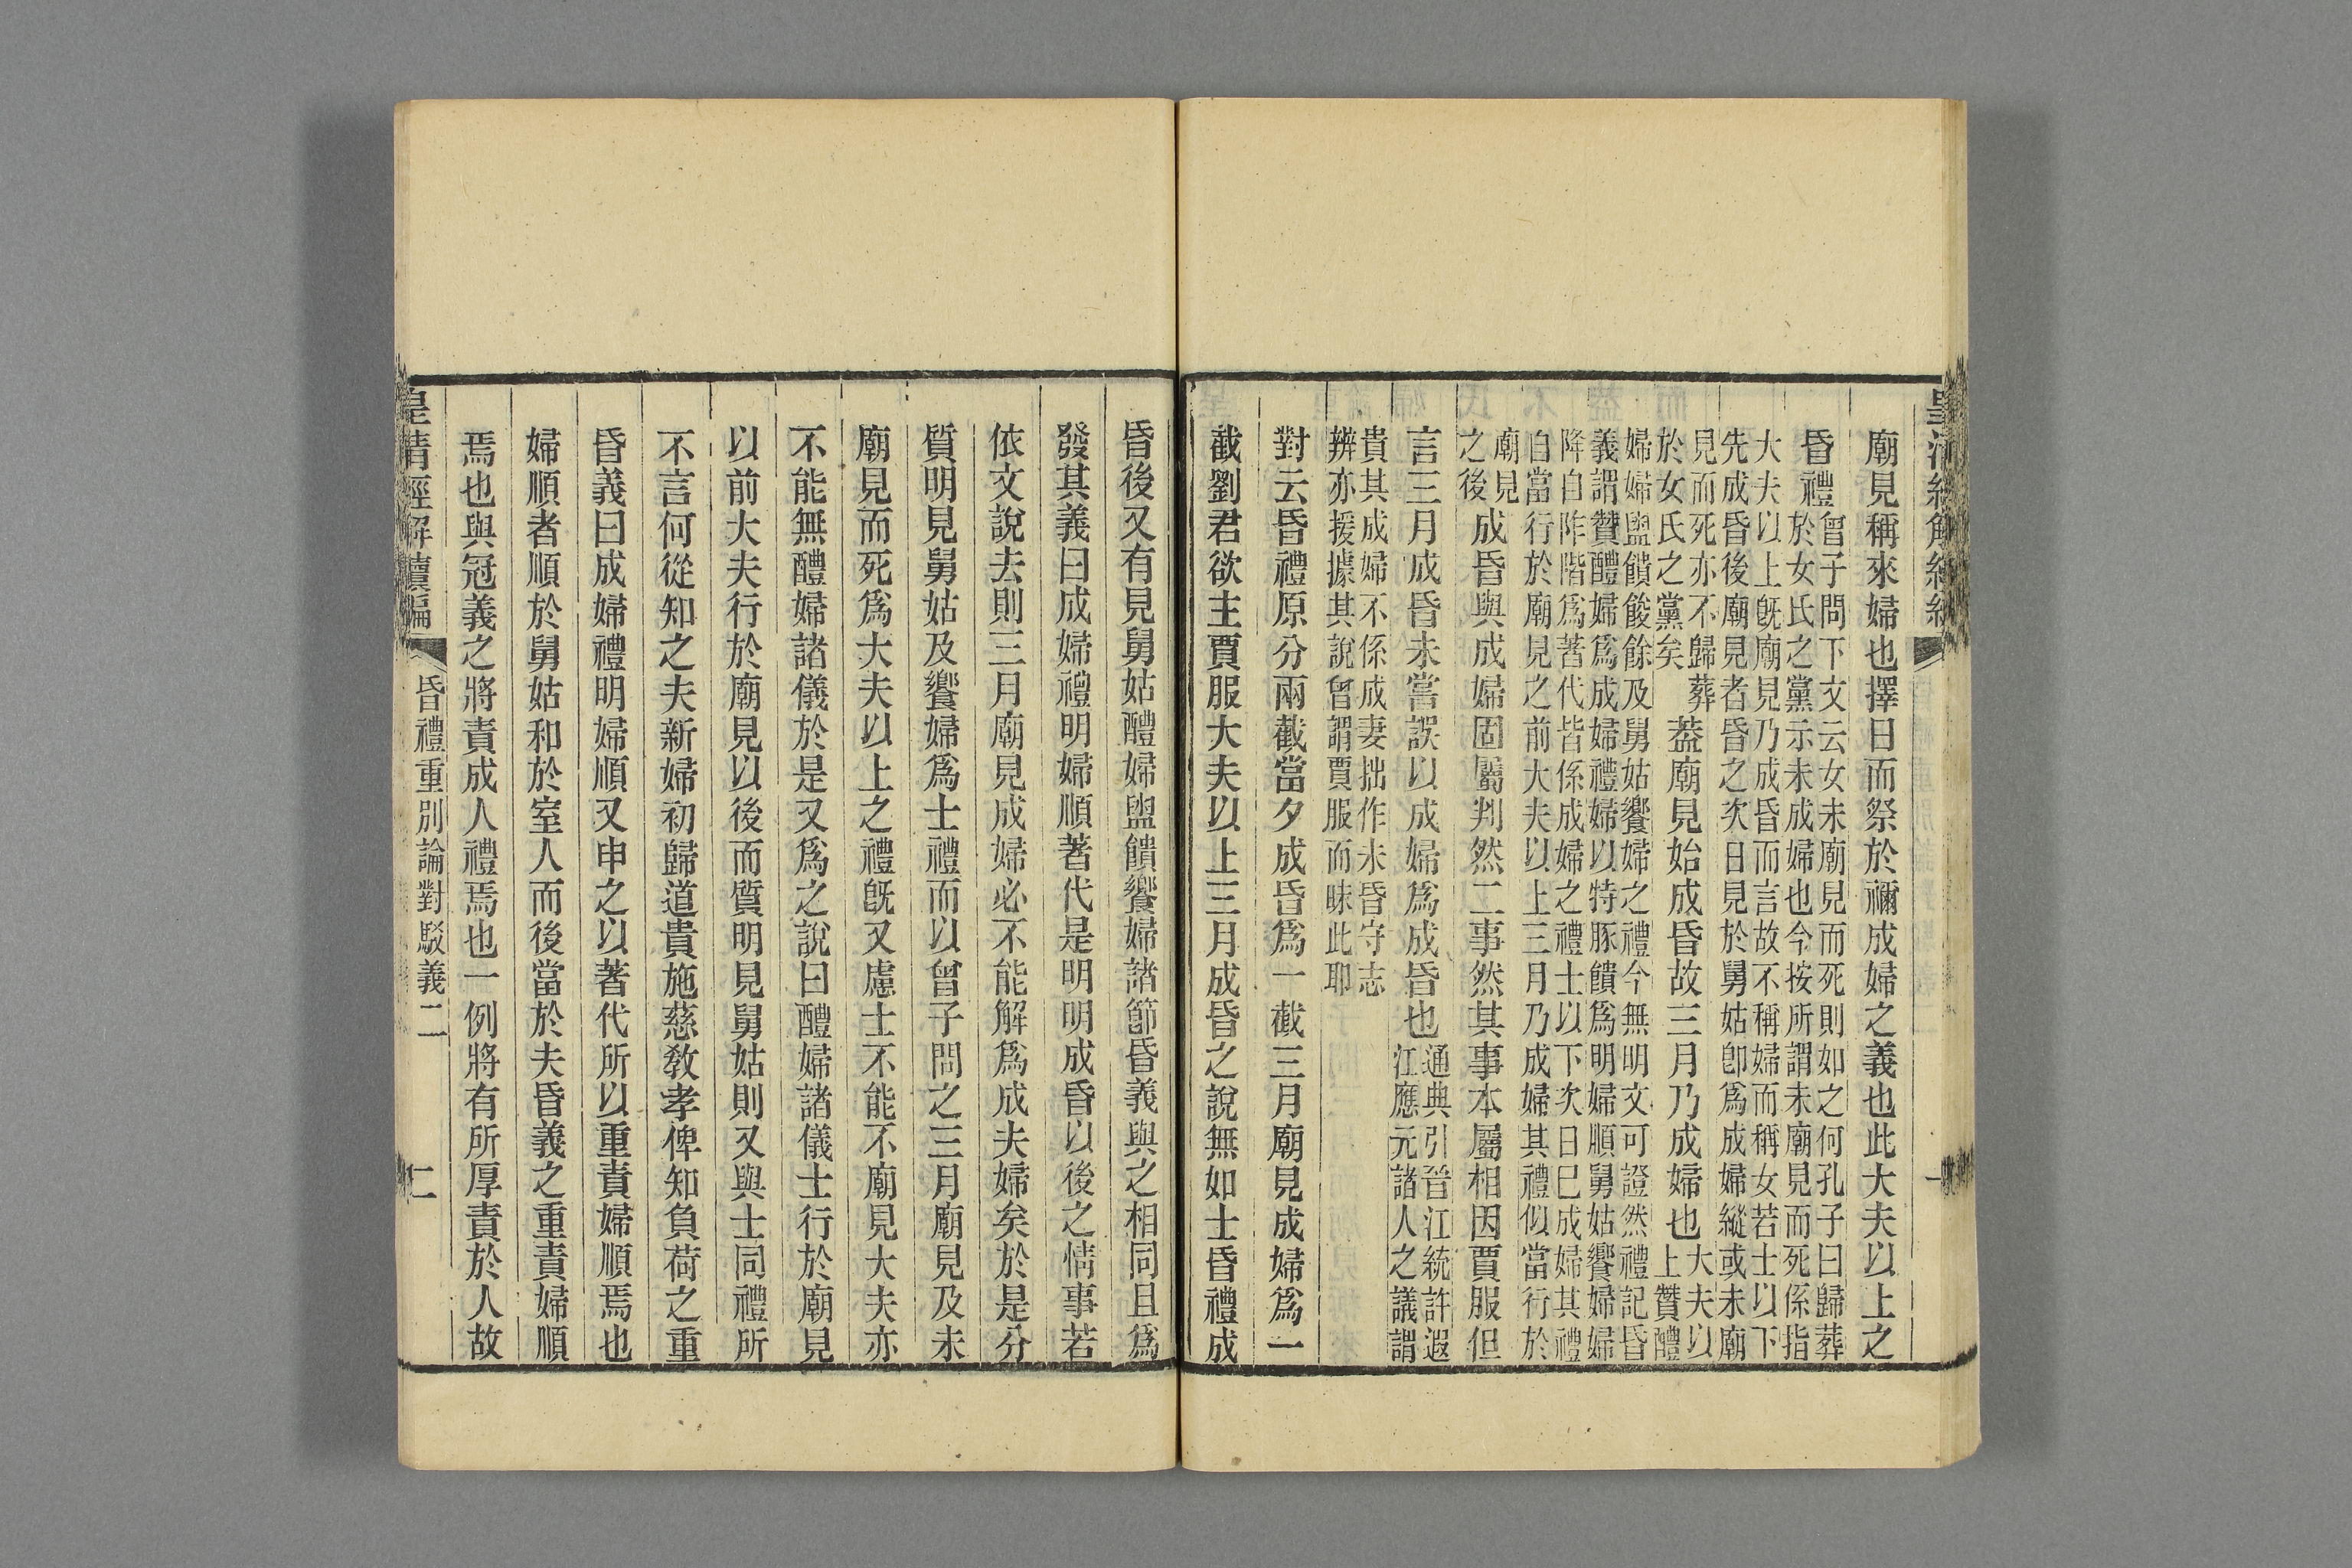 皇清經解續編
一
廟見稱來婦也擇日而祭於禰成婦之義也此大夫以上之
昏禮曾子問下文云女未廟見而死則如之何孔子曰歸葬
於女氏之黨示未成婦也今按所謂未廟見而死係指
大夫以上旣廟見乃成昏而言故不稱婦而稱女若士以下
先成昏後廟見者昏之次日見於舅姑卽爲成婦縱或未廟
見而死亦不歸葬
於女氏之黨矣
蓋廟見始成昏故三月乃成婦也大夫以
上贊醴
婦婦盥饋餕餘及舅姑饗婦之禮今無明文可證然禮記昏
義謂贊醴婦爲成婦禮婦以特豚饋爲明婦順舅姑饗婦婦
降自阼階爲著代皆係成婦之禮士以下次日已成婦其禮
自當行於廟見之前大夫以上三月乃成婦其禮似當行於
廟見
之後
成昏與成婦固屬判然二事然其事本屬相因賈服但
言三月成昏未嘗誤以成婦爲成昏也通典引晉江統許遐
江應元諸人之議謂
貴其成婦不係成妻拙作未昏守志
辨亦援據其說曾謂賈服而昧此耶
對云昏禮原分兩截當夕成昏爲一截三月廟見成婦爲一
截劉君欲主賈服大夫以上三月成昏之說無如士昏禮成
昏後又有見舅姑醴婦盥饋饗婦諸節昏義與之相同且爲
發其義曰成婦禮明婦順著代是明明成昏以後之情事若
依文說去則三月廟見成婦必不能解爲成夫婦矣於是分
質明見舅姑及饗婦爲士禮而以曾子問之三月廟見及未
廟見而死爲大夫以上之禮旣又慮士不能不廟見大夫亦
不能無醴婦諸儀於是又爲之說曰醴婦諸儀士行於廟見
以前大夫行於廟見以後而質明見舅姑則又與士同禮所
不言何從知之夫新婦初歸道貴施慈敎孝俾知負荷之重
昏義曰成婦禮明婦順又申之以著代所以重責婦順焉也
婦順者順於舅姑和於室人而後當於夫昏義之重責婦順
焉也與冠義之將責成人禮焉也一例將有所厚責於人故
皇清經解續編
昏禮重別論對駁義二
二